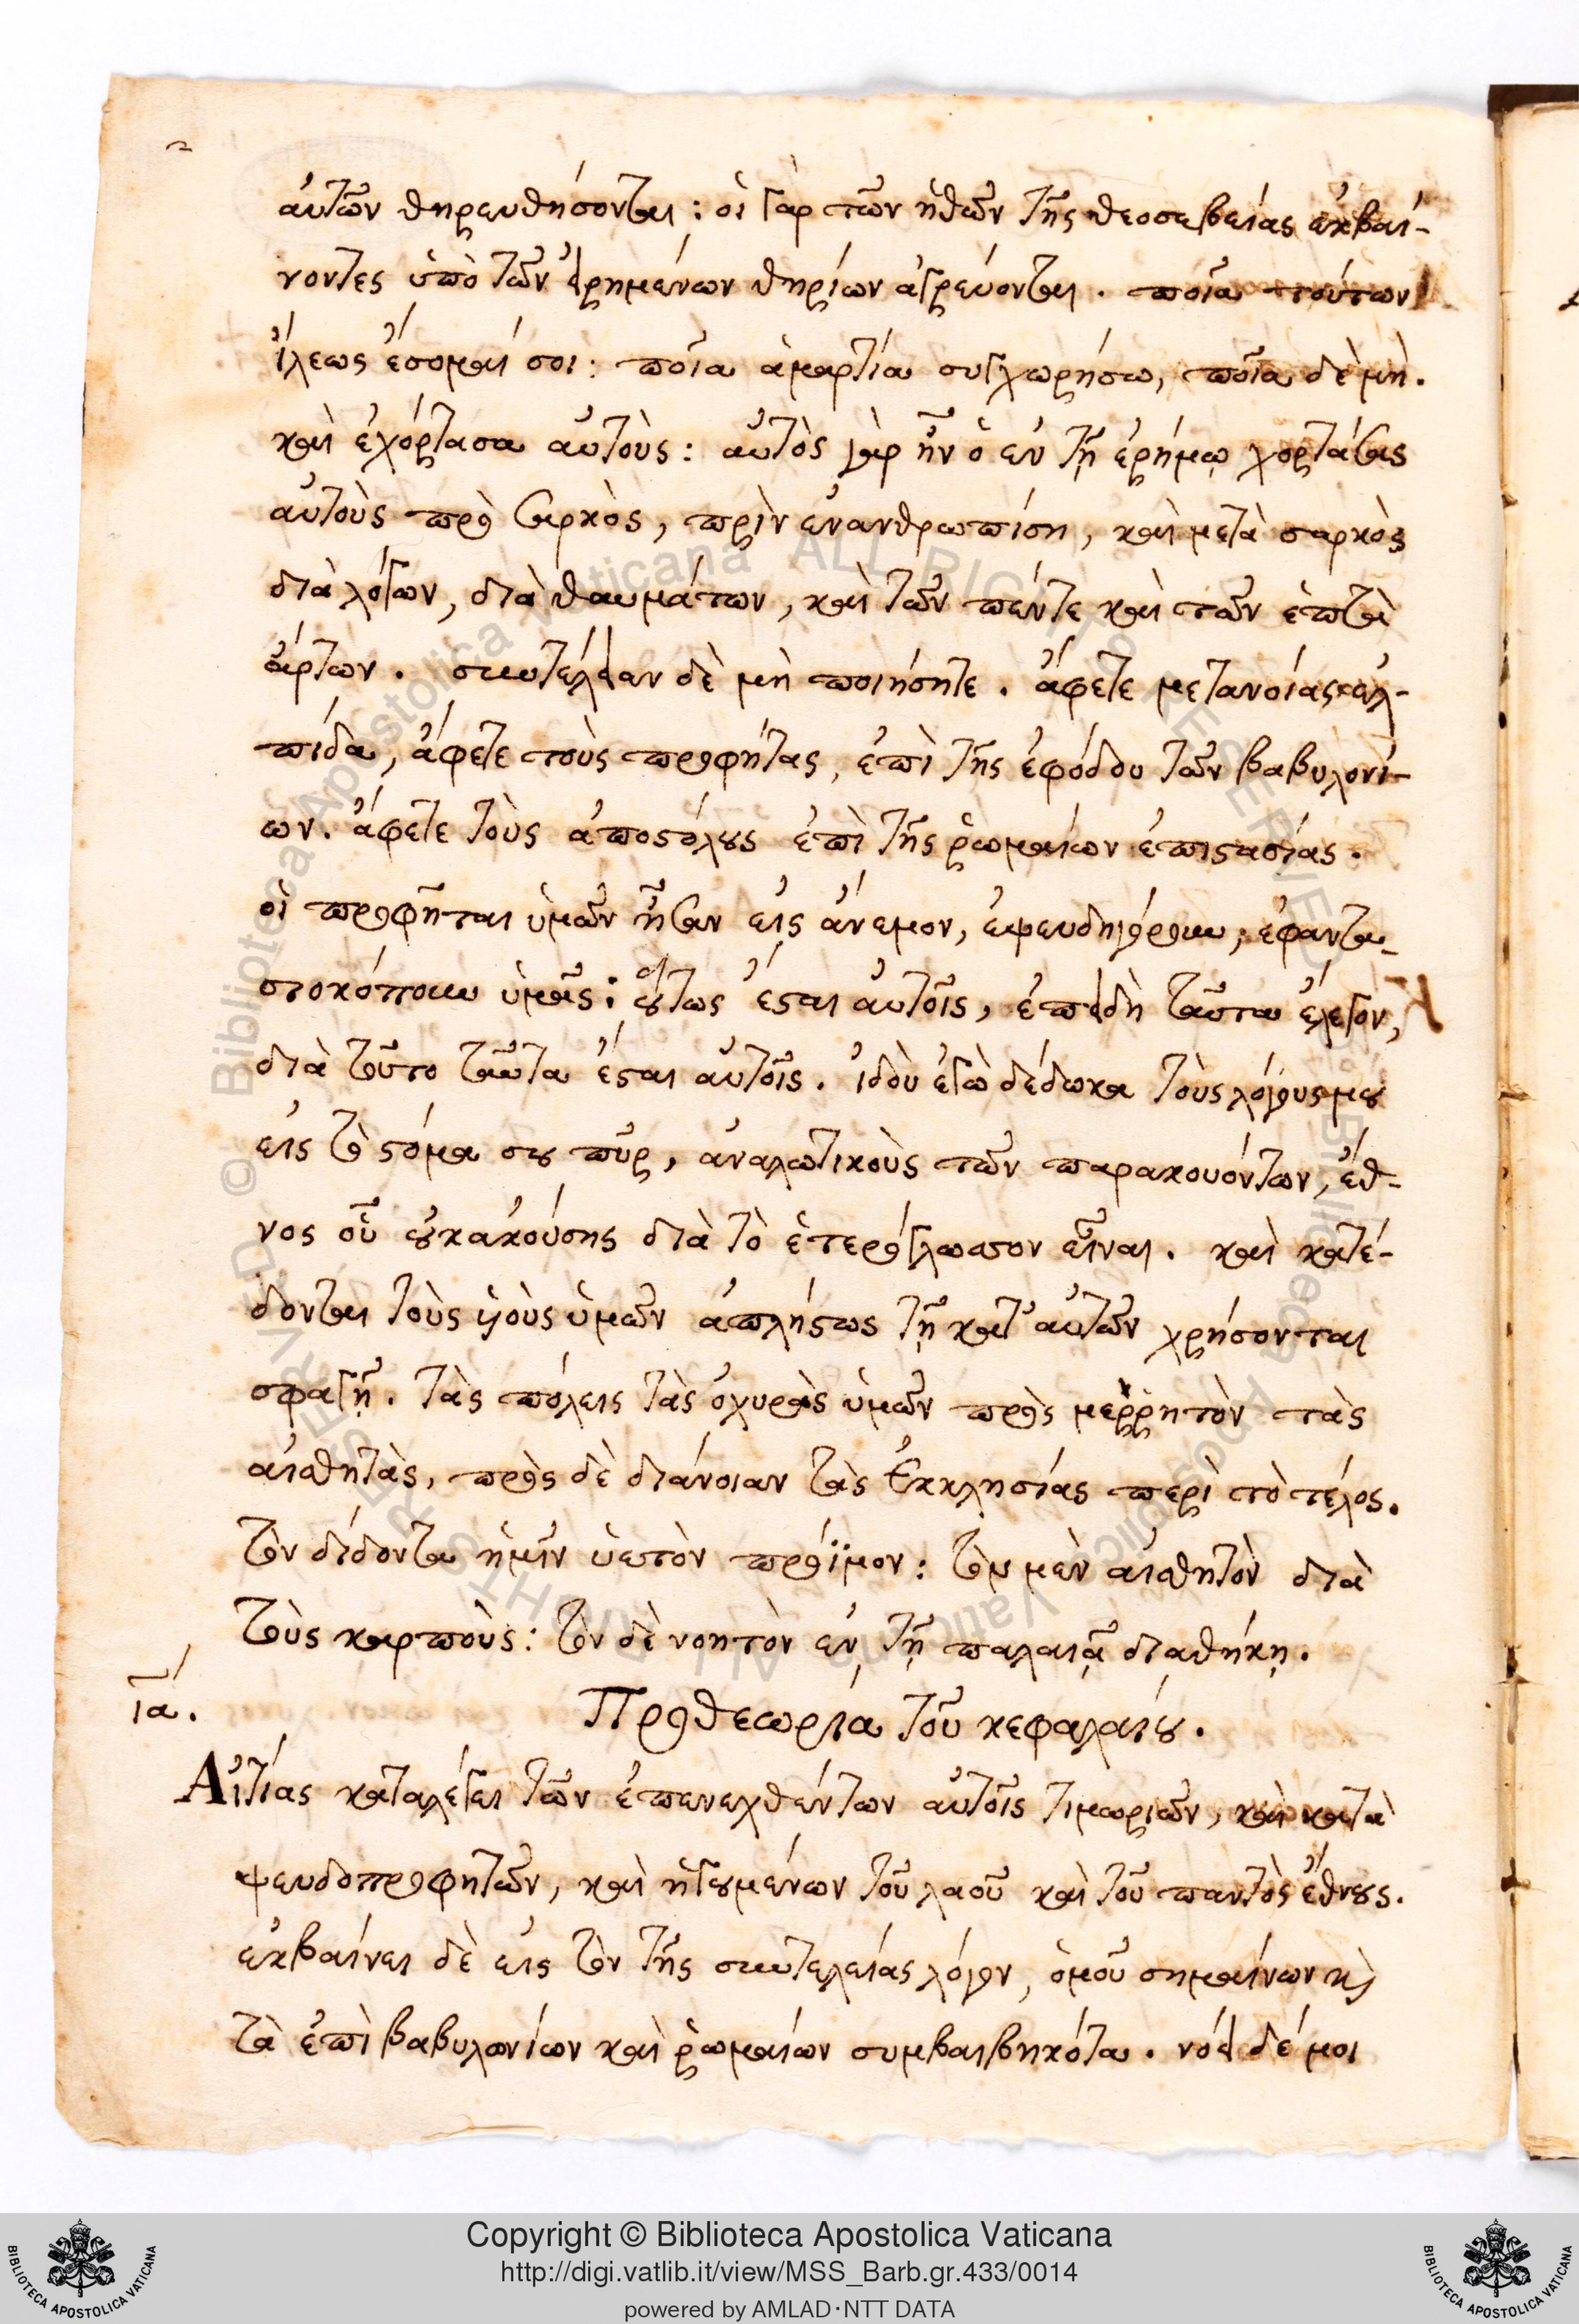 αὐτῶν θηρευθήσονται: οἱ γὰρ τῶν ἠθῶν τῆς θεοσεβείας ἐκβαί-
νοντες ὑπὸ τῶν εἰρημένων θηρίων ἀγρεύονται. ποῖα τούτων
ἵλεως ἔσομαί σοι: ποῖα ἁμαρτία συγχωρήσω, ποῖα δὲ μὴ.
καὶ ἐχόρτασα αὐτοὺς: αὐτὸς γὰρ ἦν ὁ ἐν τῇ ἐρήμῳ χορτάσας
αὐτοὺς πρὸ σαρκὸς, πρὶν ἐνανθρωπίση, καὶ μετὰ σαρκὸς
διὰ λόγων, διὰ θαυμάτων, καὶ τῶν πέντε καὶ τῶν ἑπτὰ
ἄρτων. συντέλειαν δὲ μὴ ποιήσητε. ἄφετε μετανοίας ἐλ-
πίδα, ἄφετε τοὺς προφήτας, ἐπὶ τῆς ἐφόδου τῶν βαβυλονί-
ων. ἄφετε τοὺς ἀποστόλους ἐπὶ τῆς ῥωμαίων ἐπιστασίας.
οἱ προφῆται ὑμῶν ἦσαν εἰς ἄνεμον, ἐψευδηγόρουν, ἐφαντα-
στοκόπουν ὑμᾶς: οὕτως ἔσται αὐτοῖς, ἐπειδὴ ταῦτα ἔλεγον,
διὰ τοῦτο ταῦτα ἔσται αὐτοῖς. ἰδοὺ ἐγὼ δέδωκα τοὺς λόγους μου
εἰς τὸ στόμα σου πῦρ, ἀναλωτικοὺς τῶν παρακουόντων, ἔθ-
νος οὗ οὐκ ἀκούσης διὰ τὸ ἑτερόγλωσσον εἶναι. καὶ κατέ-
δονται τοὺς υἱοὺς ὑμῶν ἀπλήστως τῇ κατ' αὐτῶν χρήσονται
σφαγῇ. τὰς πόλεις τὰς ὀχυρὰς ὑμῶν πρὸς μὲν ῥητὸν τὰς
αἰσθητὰς, πρὸς δὲ διάνοιαν τὰς Ἐκκλησίας περὶ τὸ τέλος.
τὸν διδόντα ἡμῖν ὑετὸν πρόϊμον: τὸν μὲν αἰσθητὸν διὰ
τοὺς καρποὺς: τὸν δὲ νοητὸν ἐν τῇ παλαιᾷ διαθήκῃ.
ια. Προθεωρία τοῦ κεφαλαίου.
Αἰτίας καταλέγει τῶν ἐπενεχθέντων αὐτοῖς τιμωριῶν, καὶ κατὰ
ψευδοπροφητῶν, καὶ ἡγουμένων τοῦ λαοῦ καὶ τοῦ παντὸς ἔθνους.
ἐκβαίνει δὲ εἰς τὸν τῆς συντελείας λόγον, ὁμοῦ σημαίνων κὶ
τὰ ἐπὶ βαβυλωνίων καὶ ῥωμαίων συμβαιβηκότα. νόει δέ μοι
Copyright © Biblioteca Apostolica Vaticana
http://digi.vatlib.it/view/MSS_Barb.gr.433/0014
powered by AMLAD·NTT DATA
BIBLIOTECA APOSTOLICA VATICANA
BIBLIOTECA APOSTOLICA VATICANA